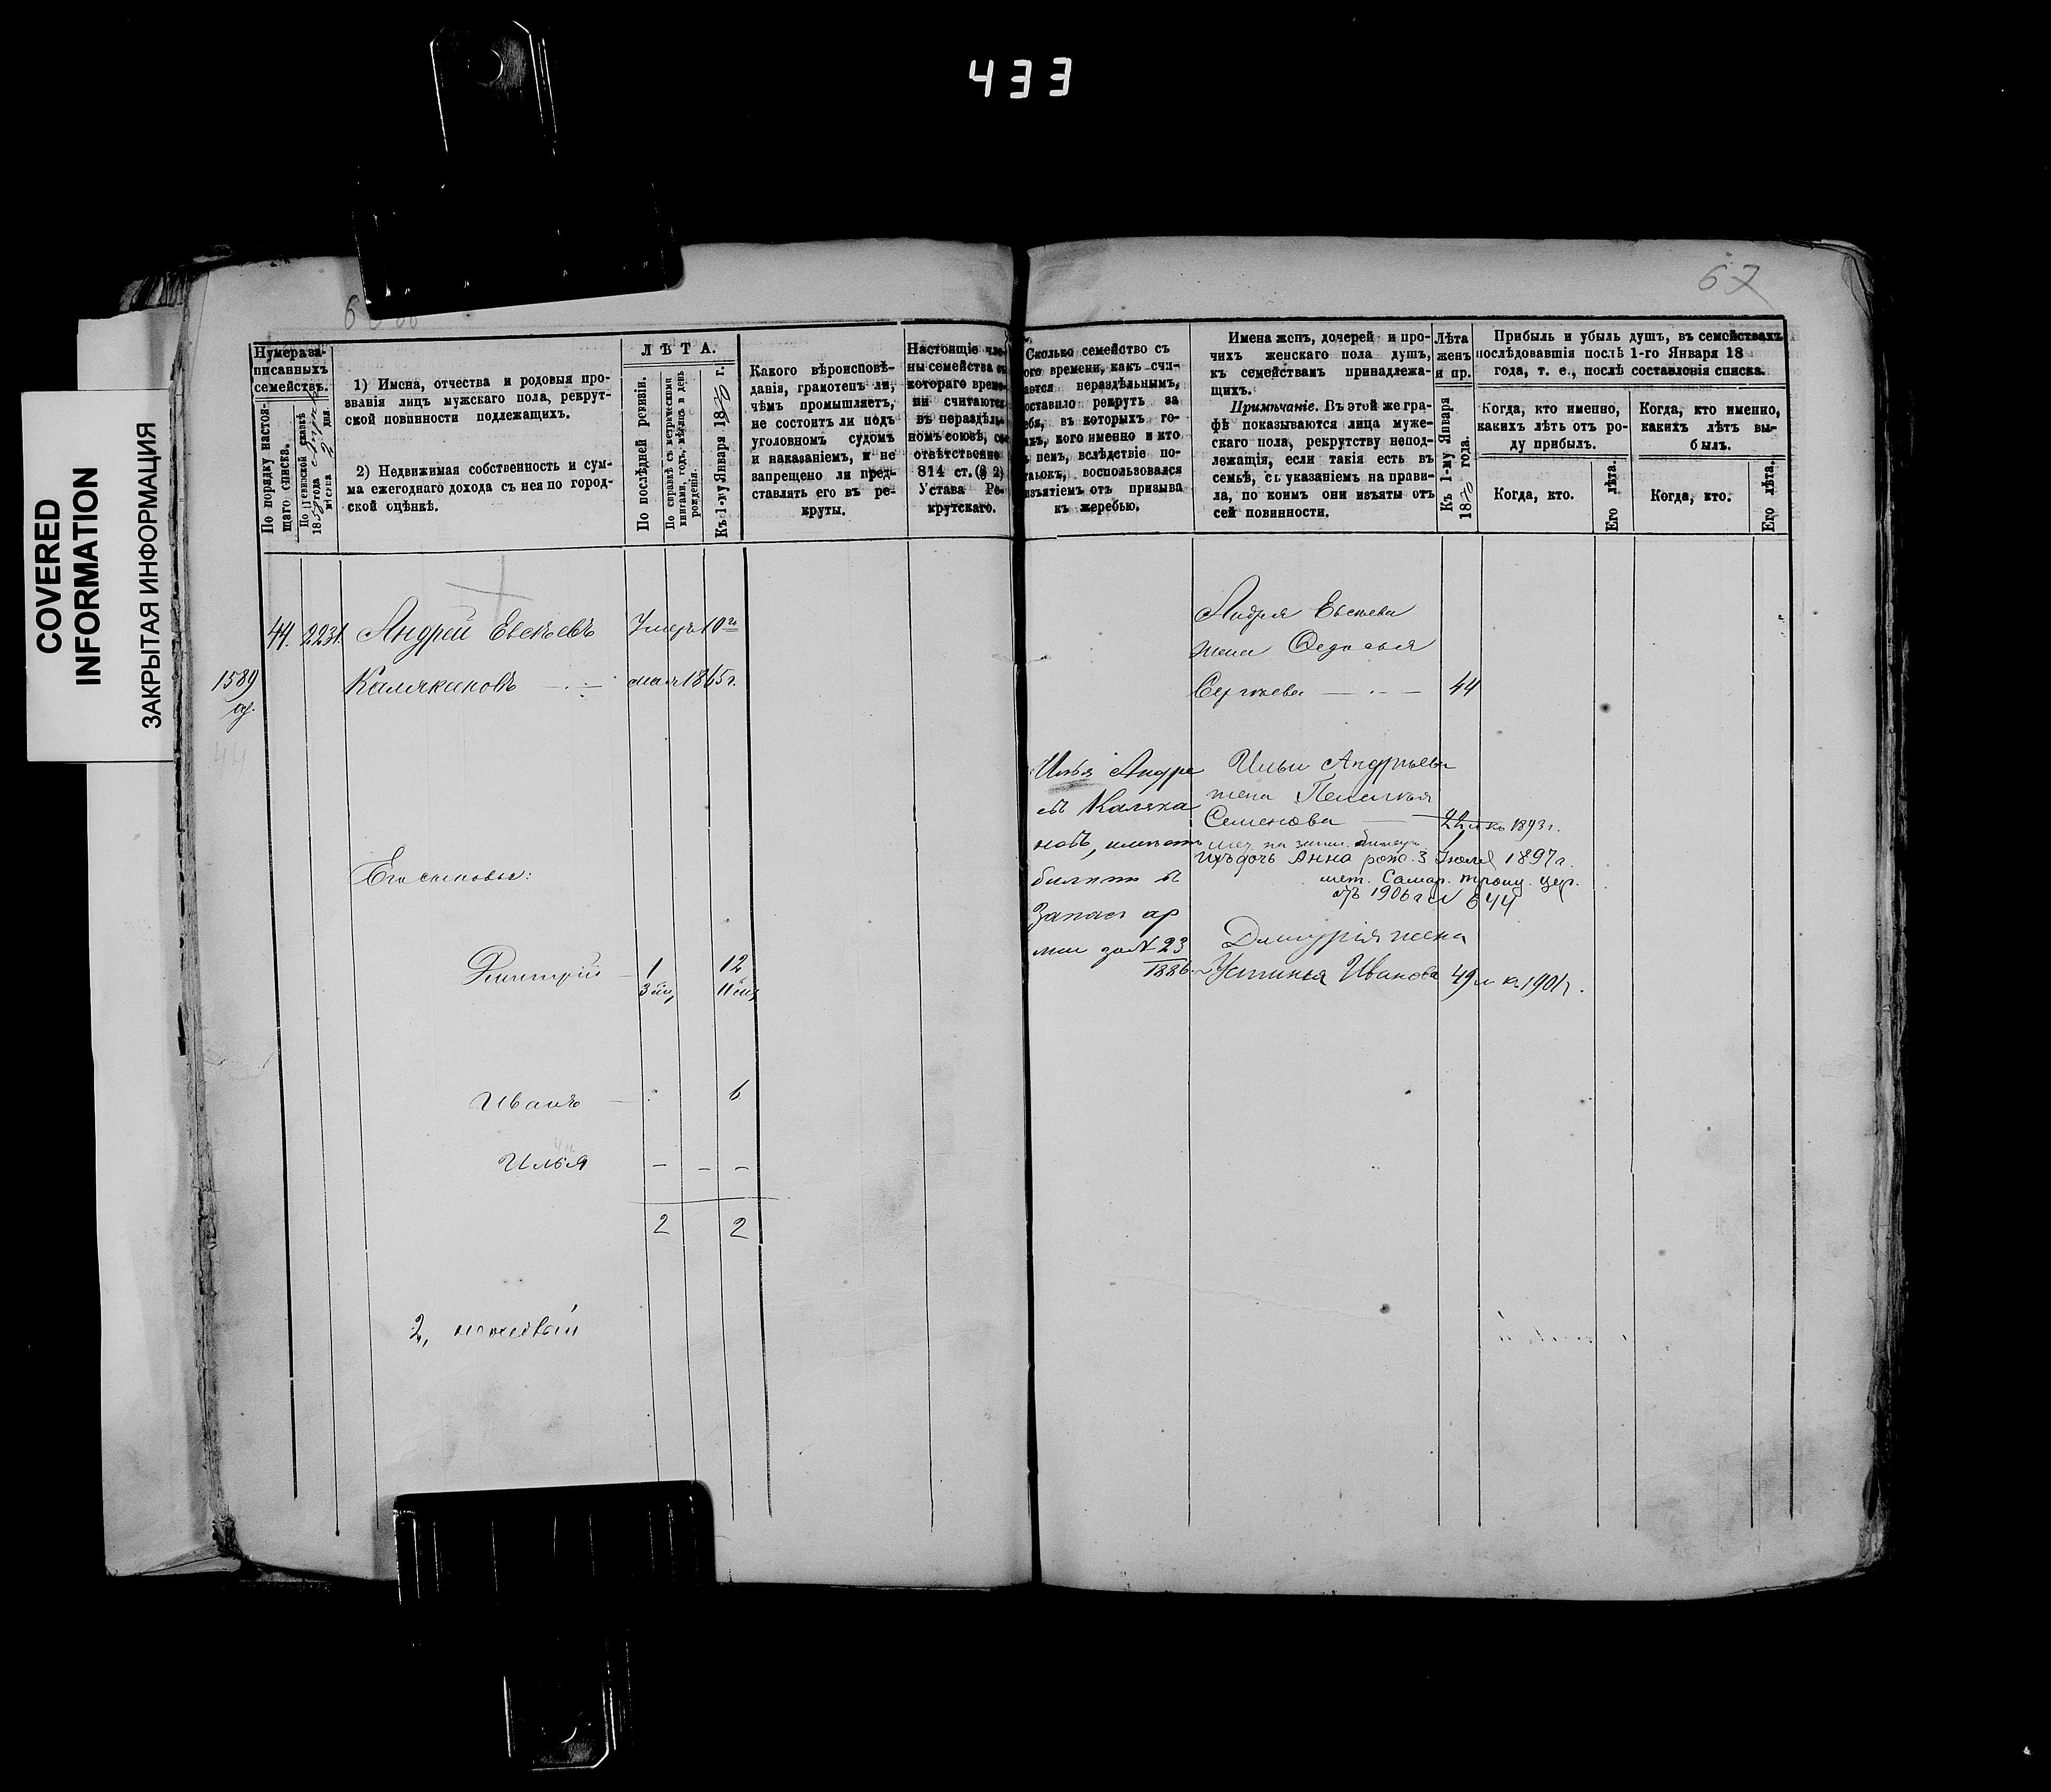 433
COVERED
INFORMATION
ЗАКРЫТАЯ ИНФОРМАЦИЯ
67
Нумера за-
писанныхъ
семействъ.
По порядку настоя-
щаго списка.
1) Имена, отчества и родовыя про-
званія лицъ мужскаго пола, рекрут-
ской повинности подлежащихъ.
2) Недвижимая собственность и сум-
ма ежегоднаго дохода съ нея по город-
ской оцѣнкѣ.
ЛѢТА.
По послѣдней ревизіи.
По справкѣ съ метрическими
книгами, годъ, мѣсяцъ и день
рожденія.
Къ 1-му Января 1870 г.
Какого вѣроисповѣ-
данія, грамотенъ ли,
чѣмъ промышляетъ,
не состоитъ ли подъ
уголовномъ судомъ
и наказаніемъ, и не
запрещено ли пред-
ставлять его въ ре-
круты.
Настоящіе чле-
ны семейства съ
котораго време-
ни считаются
въ нераздѣль-
номъ союзѣ, со-
отвѣтственно
814 ст. (§ 2)
Устава Ре-
крутскаго.
Сколько семейство съ
ого времени, какъ счи-
ается нераздѣльнымъ,
оставило рекрутъ за
ебя, въ которыхъ го-
ахъ, кого именно и кто
ъ немъ, вслѣдствіе по-
изъятіемъ отъ призыва
къ жеребью.
Имена женъ, дочерей и про-
чихъ женскаго пола душъ,
къ семействамъ принадлежа-
щихъ.
Примѣчаніе. Въ этой же гра-
фѣ показываются лица муже-
скаго пола, рекрутству непод-
лежащія, если такія есть въ
семьѣ, съ указаніемъ на прави-
ла, по коимъ они изъяты отъ
сей повинности.
Лѣта
женъ
и пр.
Къ 1-му Января
1870 года.
Прибыль и убыль душъ, въ семействахъ
послѣдовавшія послѣ 1-го Января 18
года, т. е., послѣ составленія списка.
Когда, кто именно,
какихъ лѣтъ отъ ро-
ду прибылъ.
Когда, кто.
Его лѣта.
Когда, кто именно,
какихъ лѣтъ вы-
былъ.
Когда, кто.
Его лѣта.
44. 2231. Андрей Евсѣевъ Умеръ 10го
1589 Калякановъ мая 1865 г.
44
Его сыновья:
Дмитрій 1 12
Иванъ 6
Илья - - -
2 2
Андрея Евсѣева
жена Федосья
Сергѣева 44
Илья Андре
въ Каляка
новъ, имѣетъ
билетъ въ
Запасъ ар
міи за № 23
1886
Ильи Андрѣева
жена Пелагея
Семенова 22 л къ 1893 г.
ихъ дочь Анна рож. 3 Іюля 1897 г.
мет. Самар. троиц. цер.
1906 г № 644
Дмитрія жена
Устинья Иванова 49 л къ 1901 г.